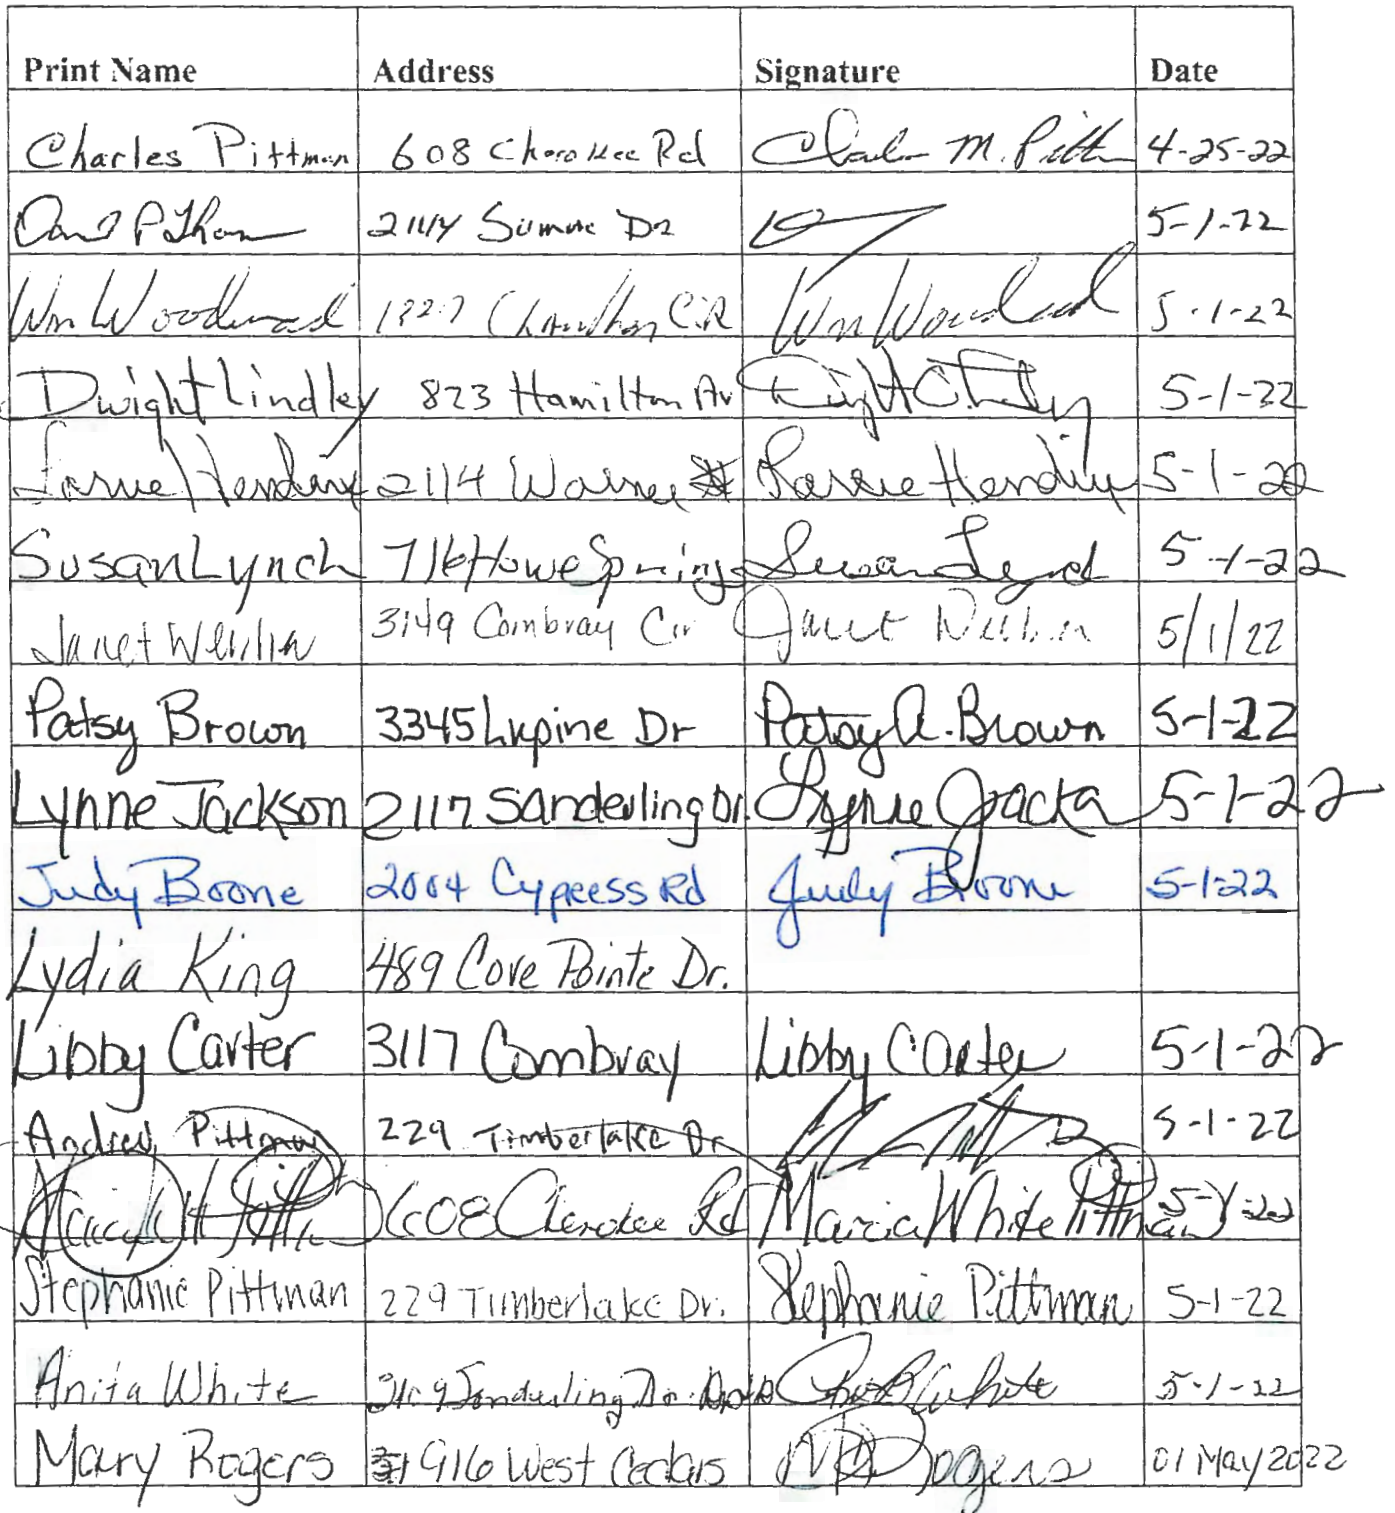 Print Name Address Signature Date
Charles Pittman 608 Cherokee Rd M. 4-25-22
Dr 5-1-22
Wm Woodward Wm 5-1-22
Dwight Lindley 823 Hamilton Av 5-1-22
Larue Hendrix 2114 Larue Hendrix 5-1-22
Susan Lynch 716 Howe Springs Susan Lynch 5-1-22
Janet 3149 Combray Cir Janet 5/1/22
Patsy Brown 3345 Lupine Dr Patsy A. Brown 5-1-22
Lynne Jackson 2117 Sanderling Dr. Lynne 5-1-22
Judy Boone 2004 Cypress Rd Judy Boone 5-1-22
Lydia King 489 Cove Pointe Dr.
Libby Carter 3117 Combray Libby Carter 5-1-22
Andrew Pittman 229 Timberlake Dr 5-1-22
608 Cherokee Rd Marcia White Pittman
Stephanie Pittman 229 Timberlake Dr. Stephanie Pittman 5-1-22
Anita White Sanderling Dr. White 5-1-22
Mary Rogers 916 West Cedars Rogers 01 May 2022